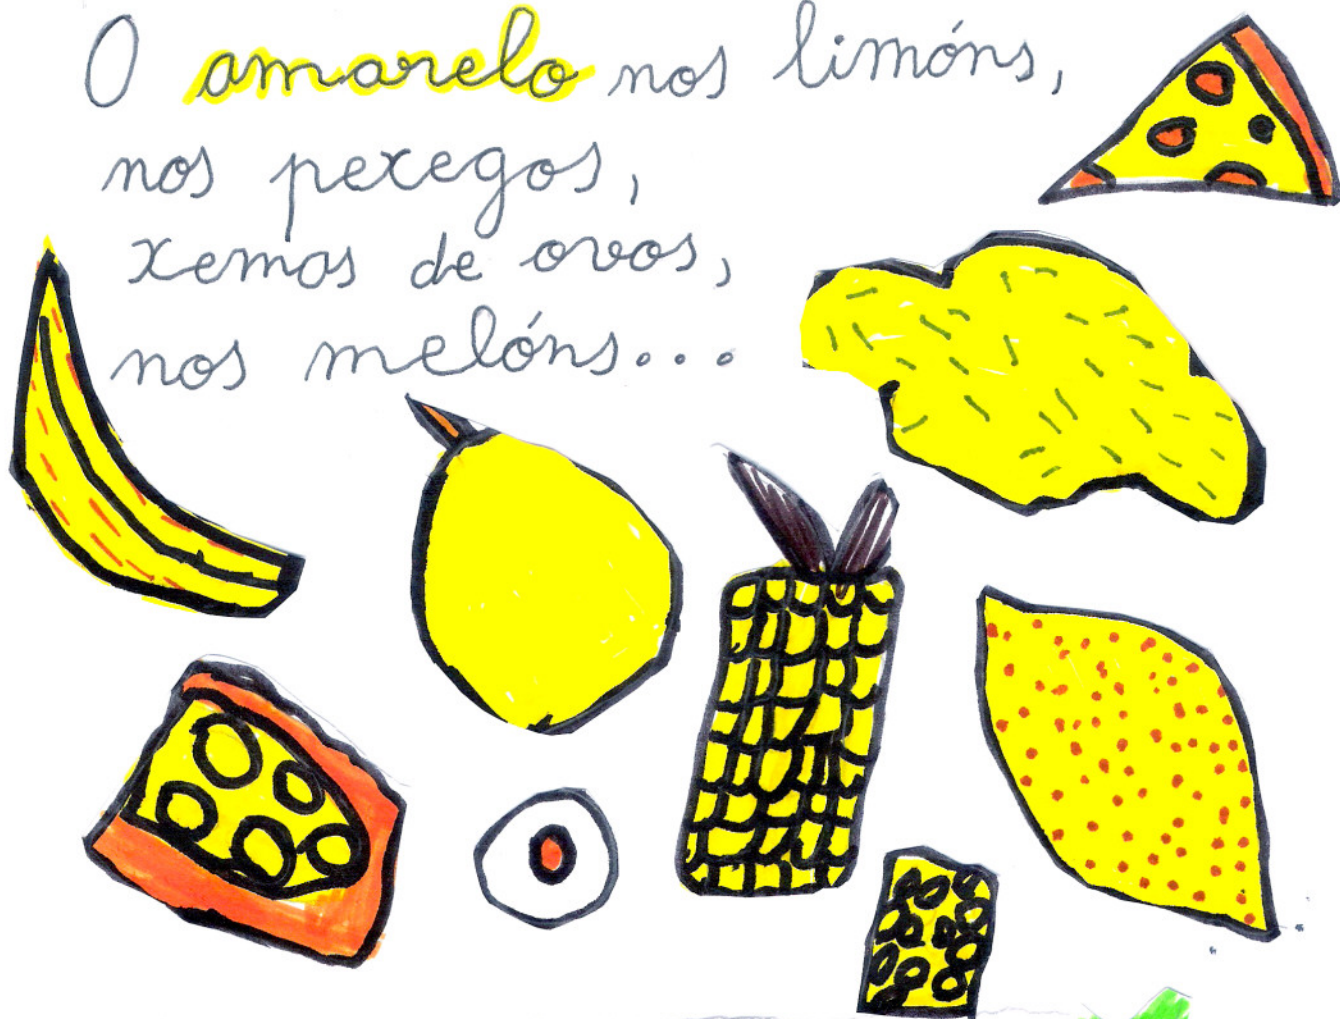 O amarelo nos limóns,
nos pexegos,
xemas de ovos,
nos melóns...